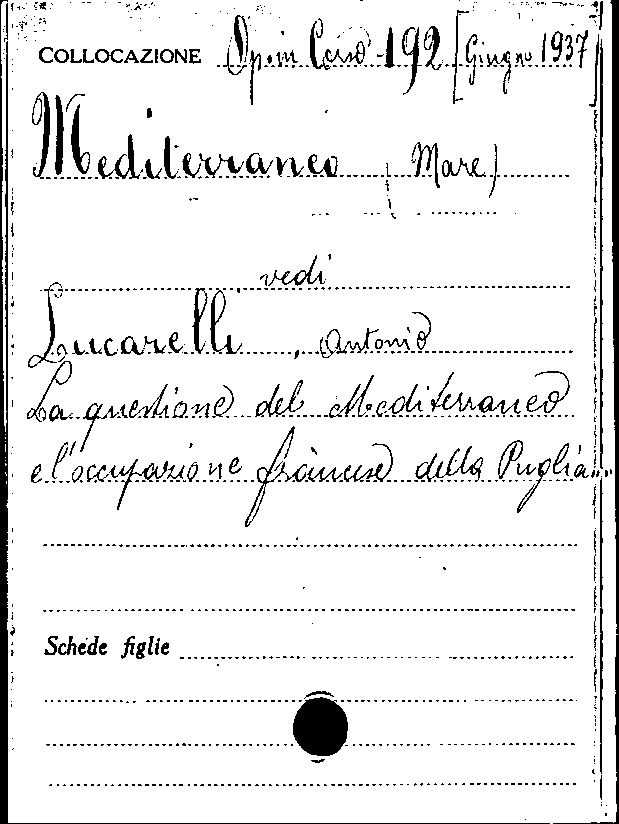 COLLOCAZIONE Op. in Corso - 192 [Giugno 1937]
Mediterraneo (Mare)
vedi
Lucarelli, Antonio
La questione del Mediterraneo
e l'occupazione francese della Puglia...
Schede figlie